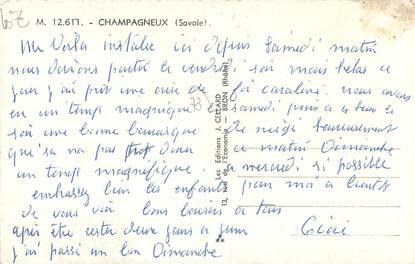 67
M. 12.611. - CHAMPAGNEUX (Savoie).
Me Voila installée ici depuis Samedi matin
nous devions partir le vendredi soir mais helas ce
jour j'ai pris une crise de foi carabiné. nous avons
eu un temps magnifique samedi puis a
soir une bonne de neige heureusement
que sa na pas ce matin Dimanche
un temps magnifique. a mercredi si possible
embrassez bien les enfants pour moi a bientot
de vous voir bons baisers a tous
après être resté deux jours a jeun
j'ai passé un bon Dimanche
Les Editions J. CELLARD
13, Rue de l'Economie - BRON (Rhône)